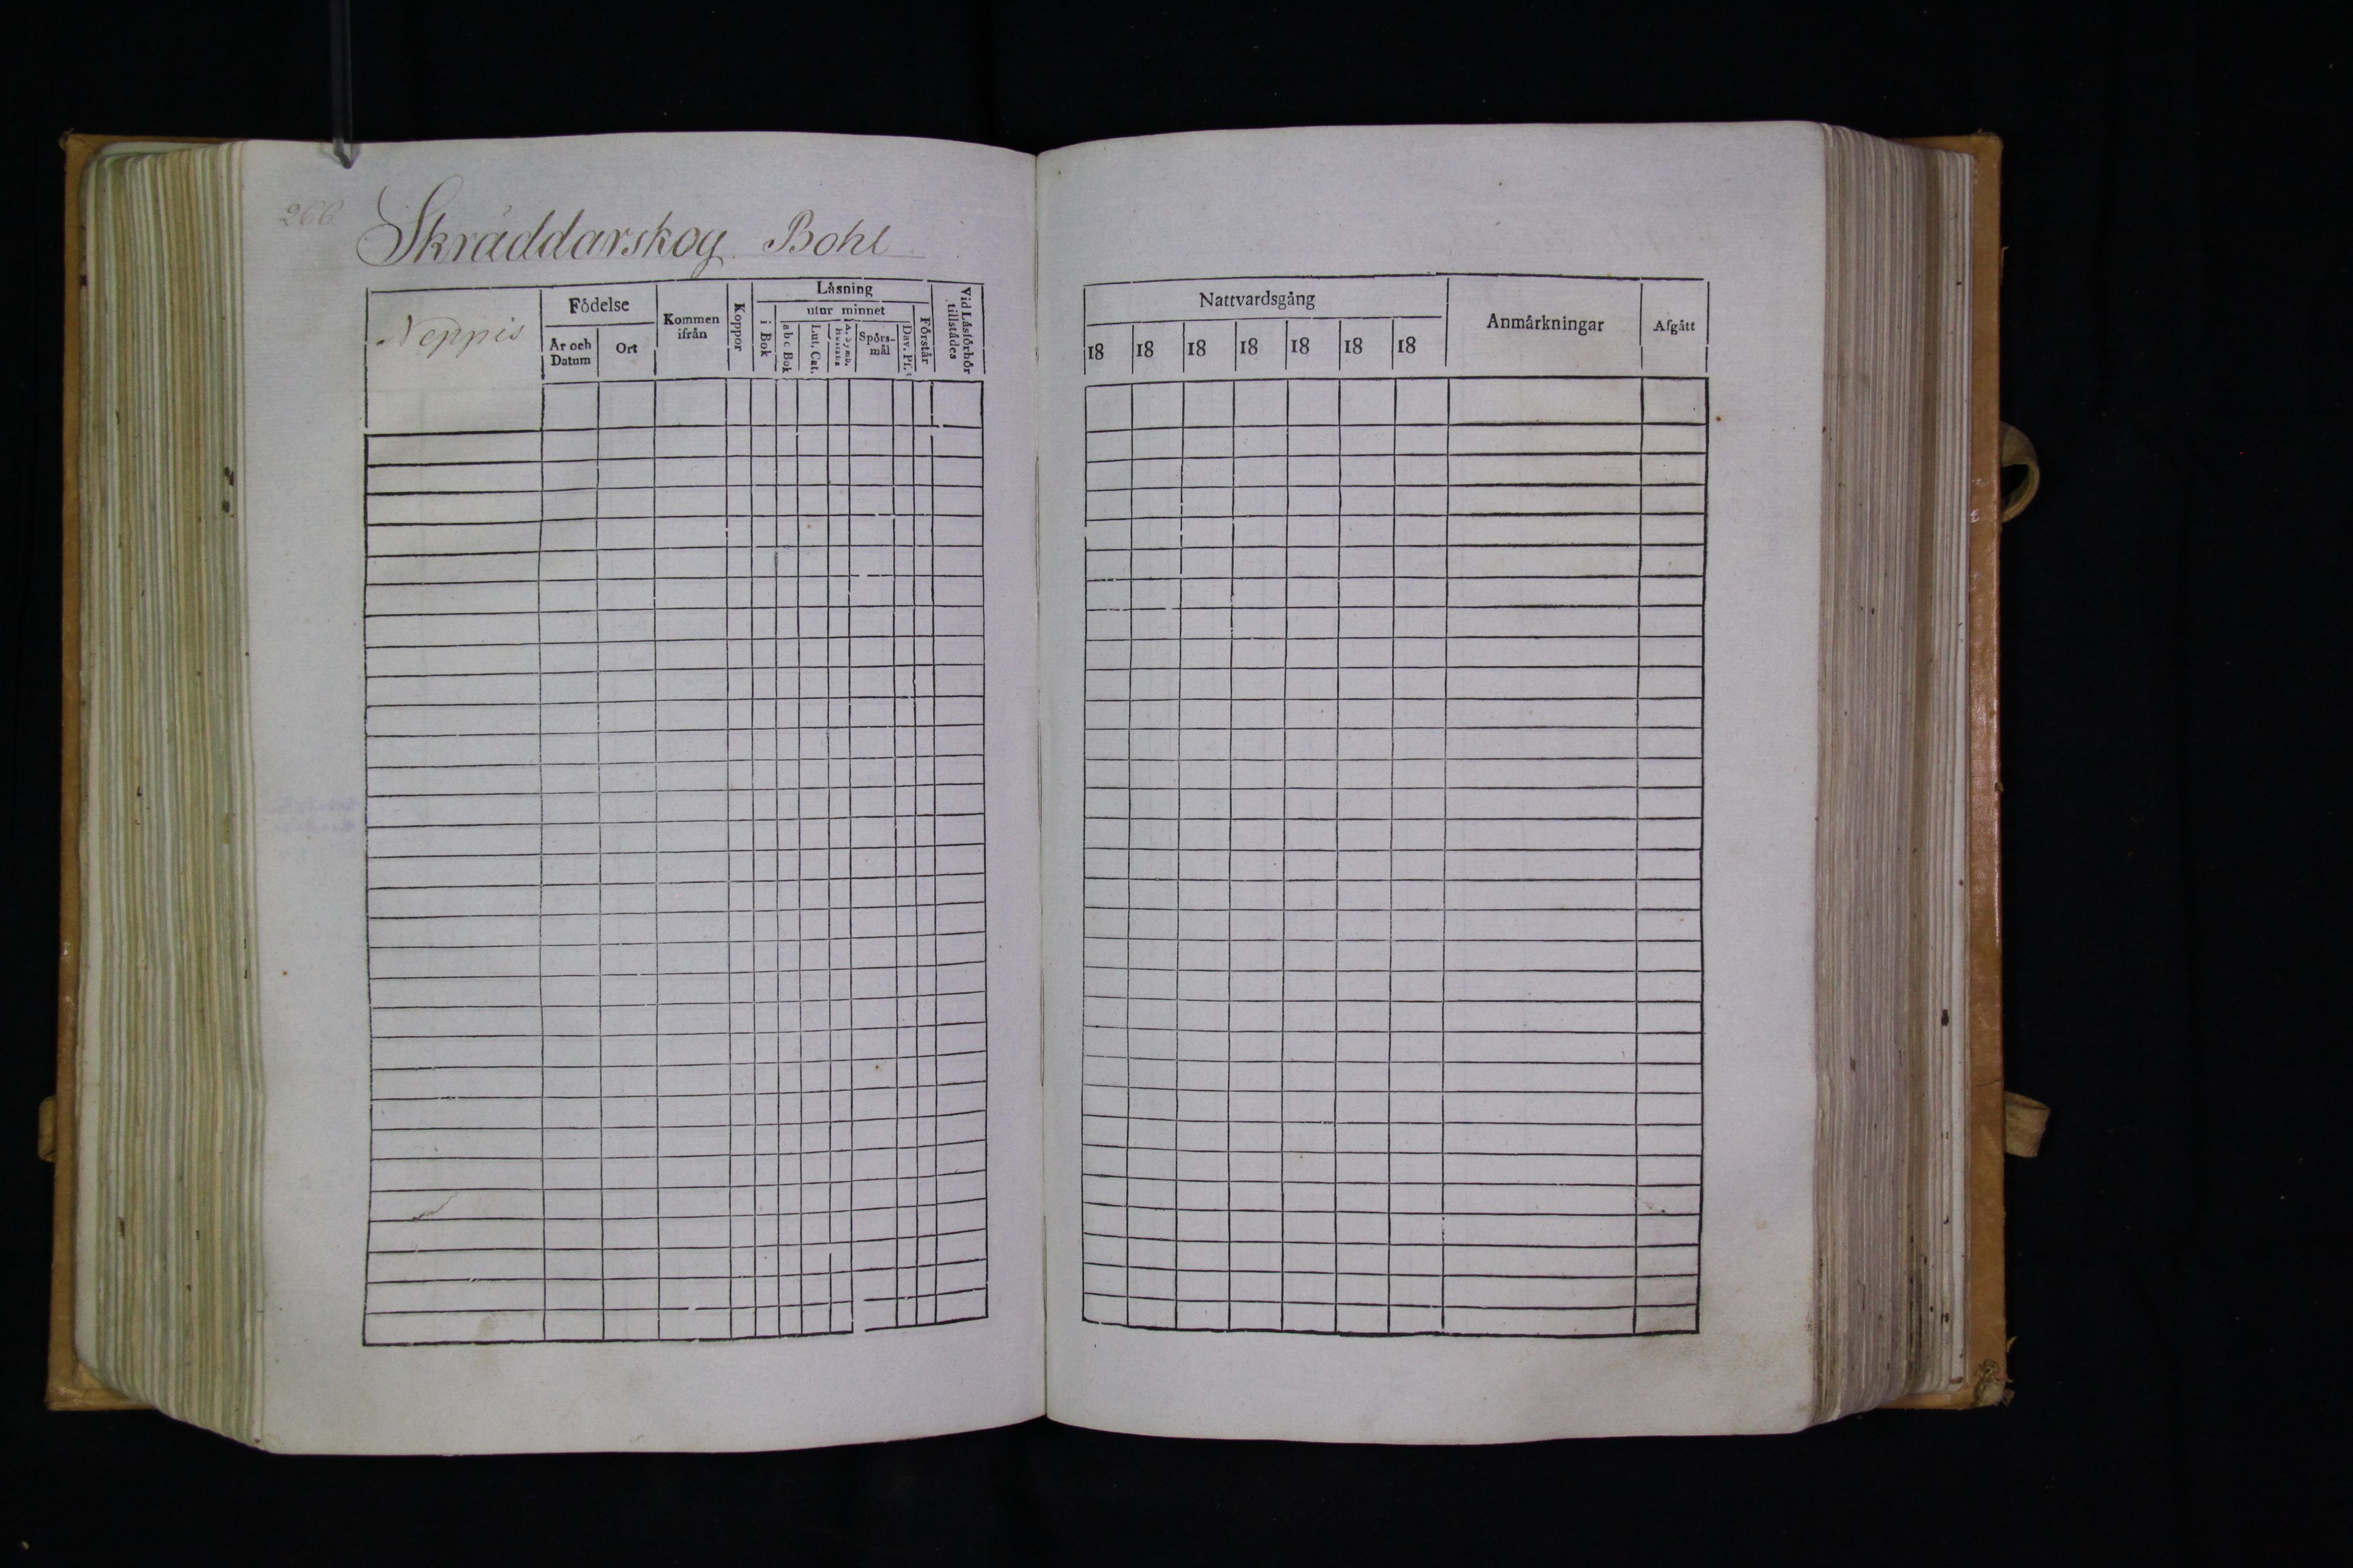 266
Skräddarskog Bohl
Neppis
Födelse
År och
Datum
Ort
Kommen
ifrån
Koppor
Läsning
i Bok
utur minnet
abc Bok
Lut. Cat.
Spörs-
mål
Dav. Ps.
Förstår
Vid Läsförhör
tillstådes
Nattvardsgång
18 18 18 18 18 18 18
Anmärkningar
Afgått